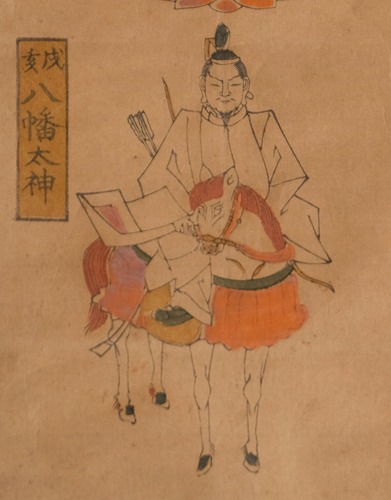 戌亥
八幡太神